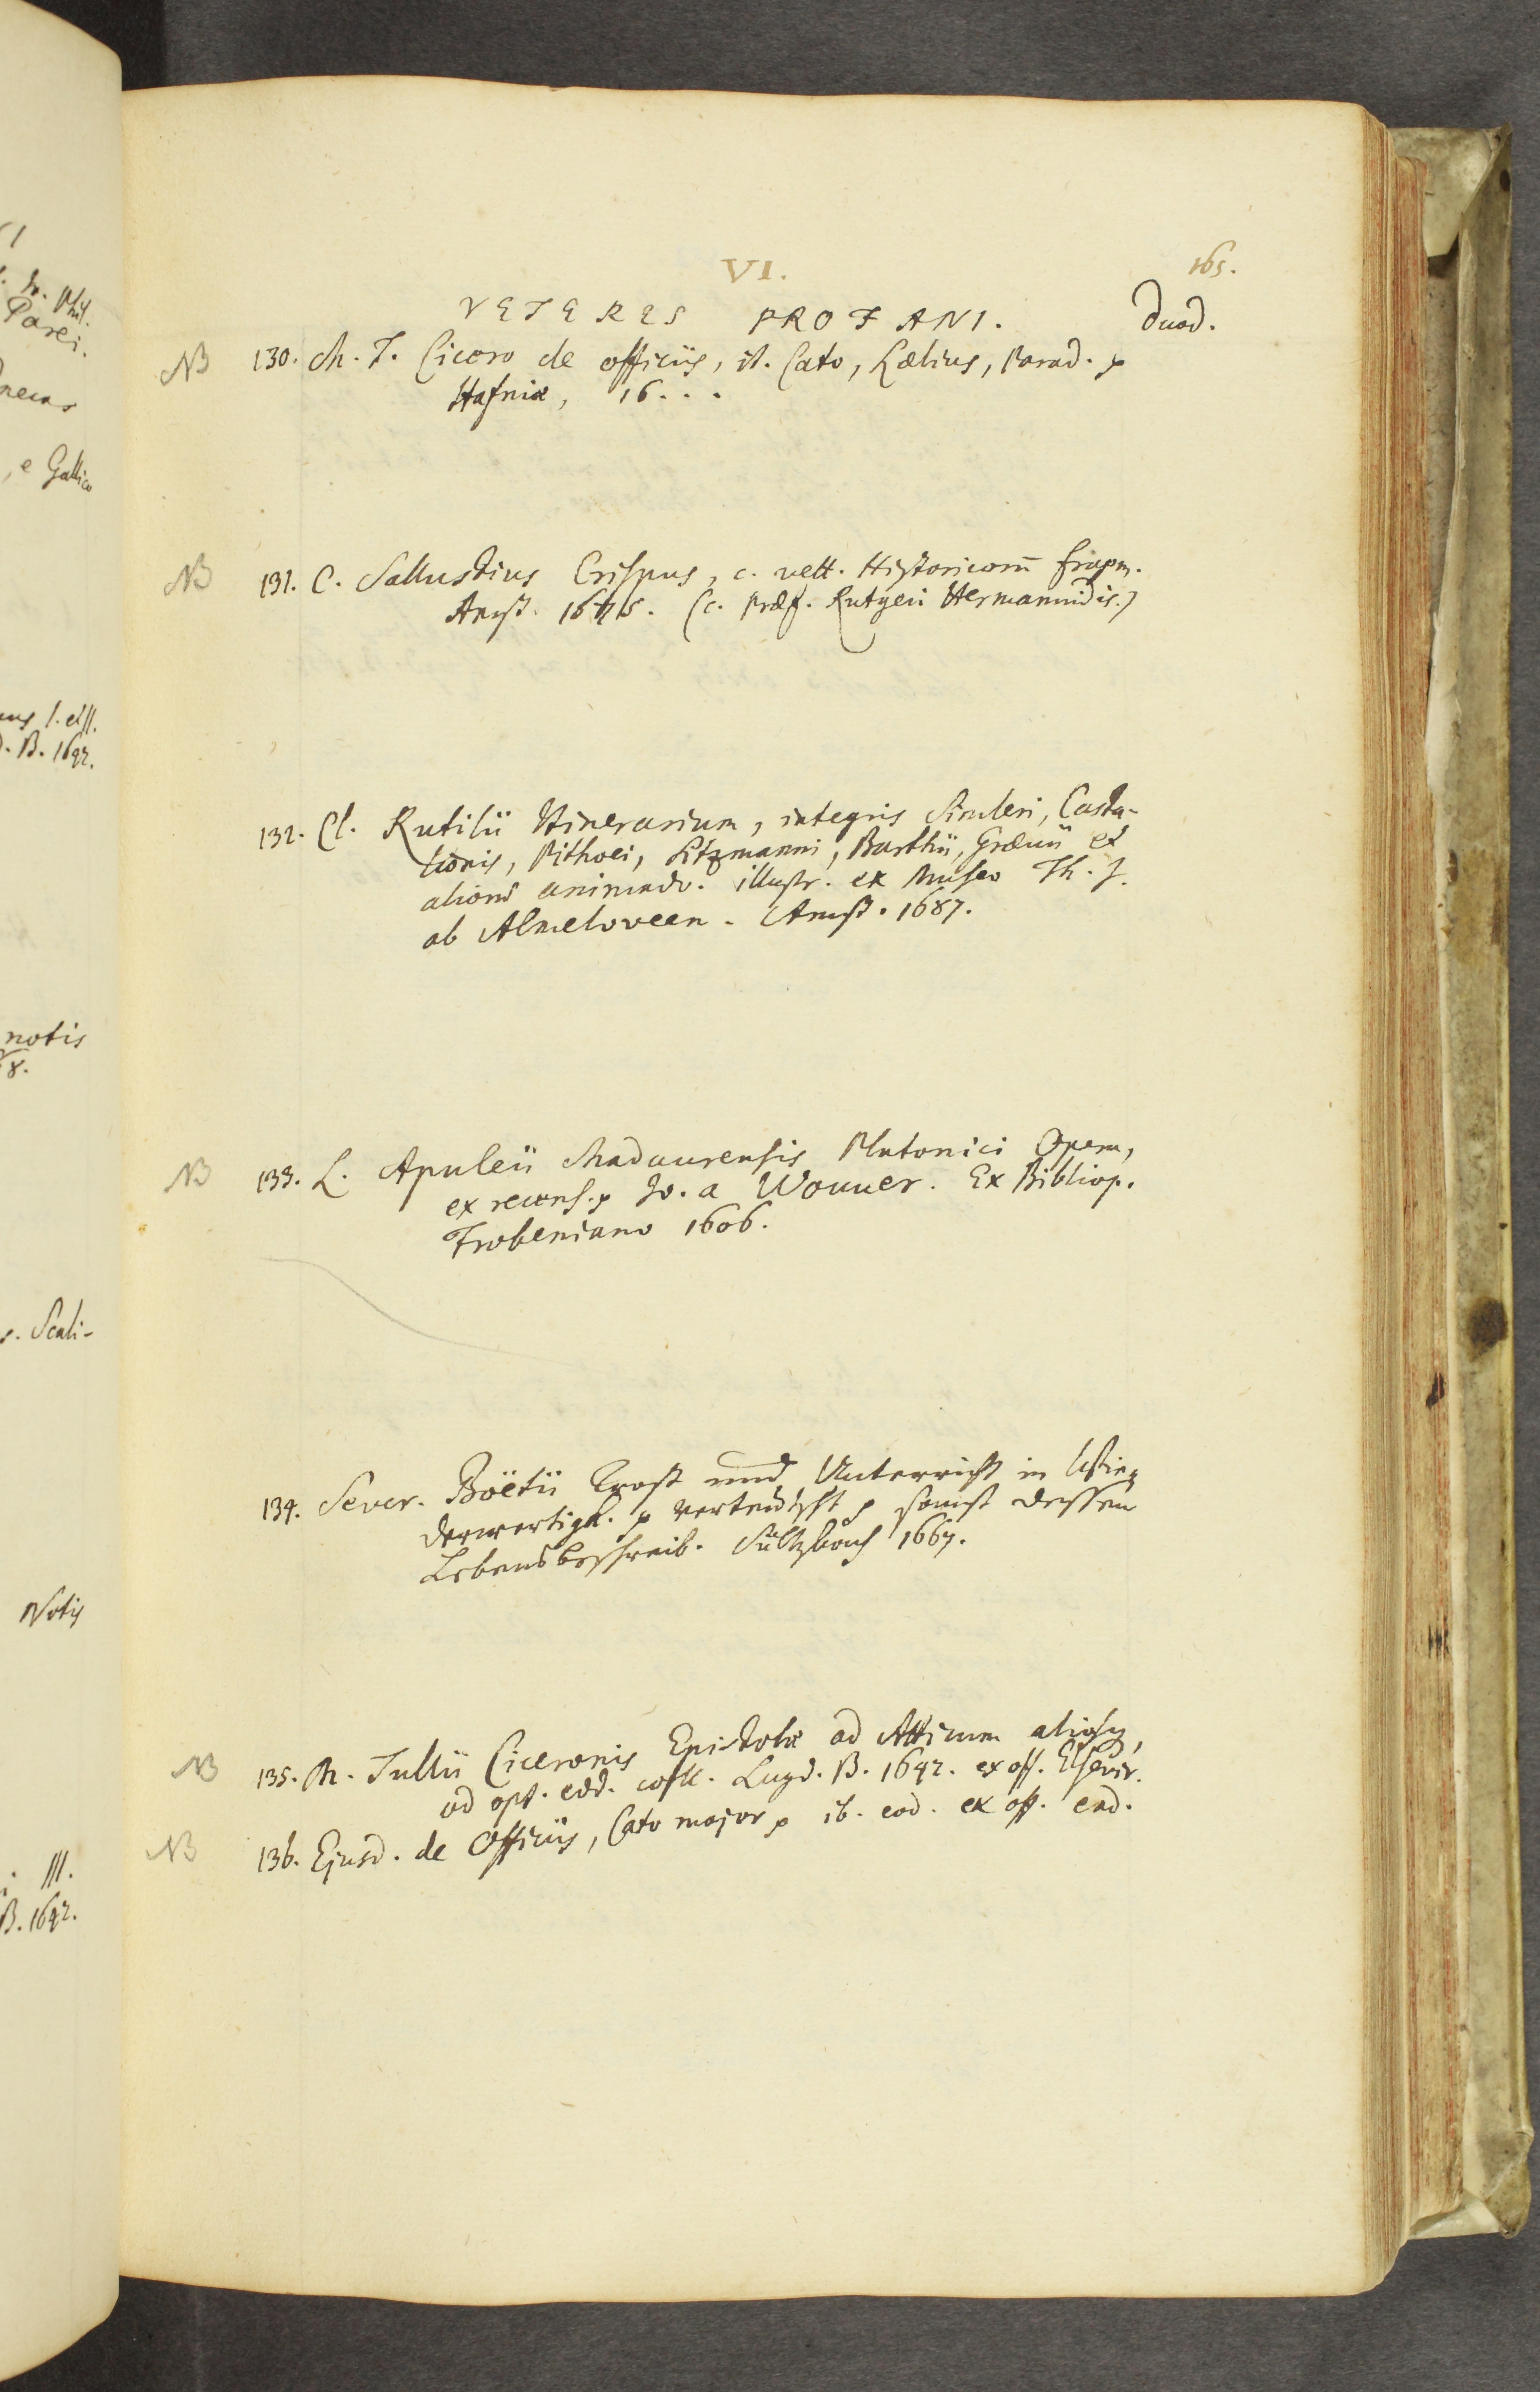 VI.
165.
VETERES PROFANI.
Duod.
NB 130. M. T. Cicero de officiis, it. Cato, Lælius, Parad. p
Hafniæ, 16...
NB 131. C. Sallustius Crispus, c. vett. Historicorū fragm.
Amst. (c. præf. Rutgeri Hermannidis.)
132. Cl. Rutilii Itinerarium, integris Simleri, Casta-
lionis, Pithoei, Sitzmanni, Barthii, Grævii et
aliorū animadv. illustr. ex Museo Th. J.
ab Almeloveen. Amst. 1687.
NB 133. L. Apuleii Madaurensis Platonici Opera,
ex recens. p Jo. a Wouuer. Ex Bibliop.
Frobeniano 1606.
134. Sever. Boëtii Trost und Unterricht in
derwertigk. p verteutscht p sampt dessen
Lebensbeschreib. Sultzbach 1667.
NB 135. M. Tullii Ciceronis Epistolæ ad Atticum aliosq,
ad opt. edd. coll. Lugd. B. 1642. ex off. Elsevir.
NB 136. Ejusd. de Officiis, Cato major p ib. eod. ex off. ead.
Jo. Phil.
Parei.
e Gallico
B. 1642.
notis
8.
Scali-
Notis
III.
B. 1642.